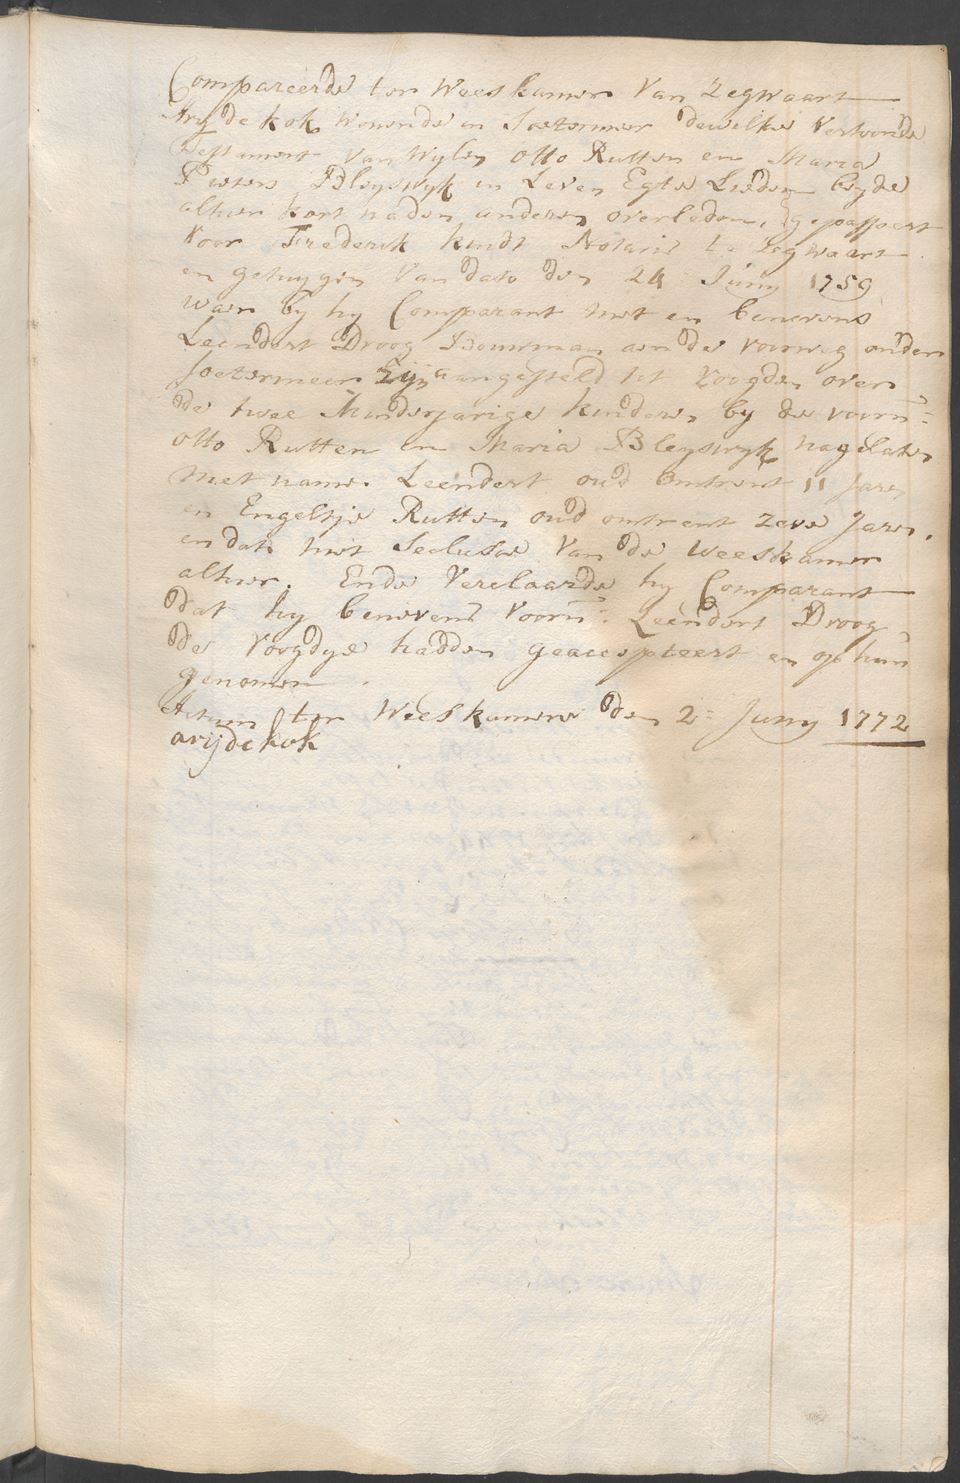 Compareerde ter Weeskamer Van Zegwaart
Arij de kok wonende in Soetermeer dewelke vertoonde
Testament van Wylen Otto Rutten en Maria
Pieters Bleyswyk in Leven Egte Lieden beyde
alhier kort naden anderen overleden, gepasseert
voor Frederik kindt Notaris te Zegwaart
en getuygen van dato den 24 Juny 1759
waer by hy Comparant met en benevens
Leendert Droog Bouwman aen de voorweg onder
Soetermeer Zijn aangesteld tot voogden over
de twee Minderjarige kinderen by de voorn:
Otto Rutten en Maria Bleyswyk nagelaten
met name Leendert oud omtrent 11 Jaren
en Engeltje Rutten oud omtrent zeve Jaren.
en dat met Seclusie van de weeskamer
alhier. Ende Verclaarde hy Comparant
dat hy benevens voorn: Leendert Droog
de voogdye hadden geaccepteert en op hun
genomen.
Actum ter Weeskamere den 2: Juny 1772
arij de kok